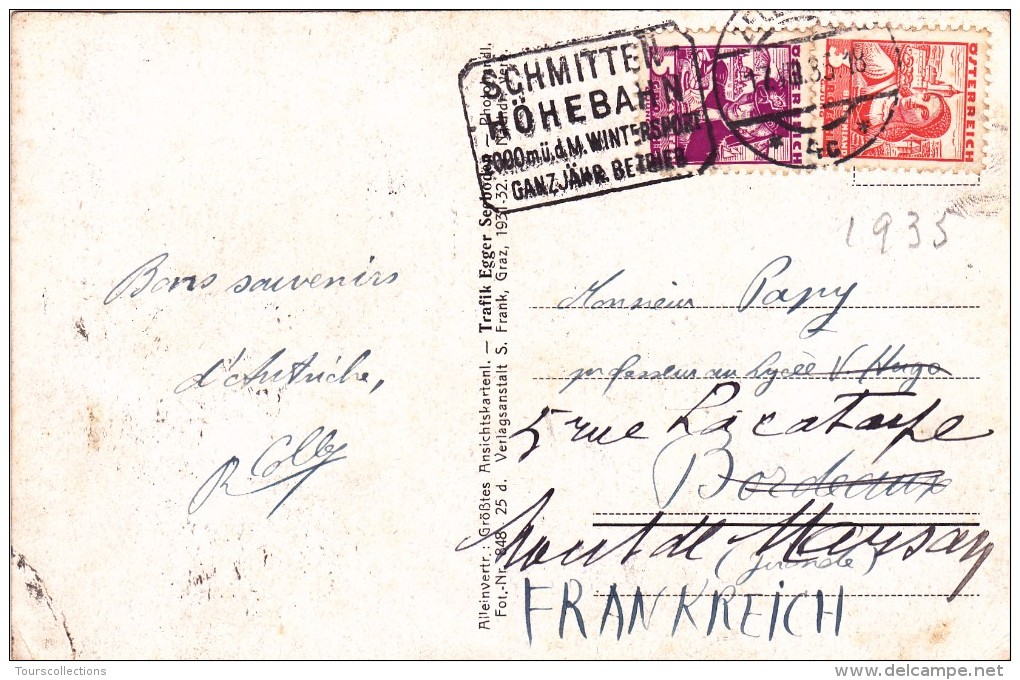 SCHMITTEN-
HÖHEBAHN
2000 m ü. d. M. WINTERSPORT
GANZJÄHR. BETRIEB
ÖSTERREICH
ÖSTERREICH
4c
1935
Bons souvenirs
d'Autriche,
R Colly
Alleinvertr.: Größtes Ansichtskartenl. — Trafik Egger Seeboden —
Fot.-Nr. 848 25 d. Verlagsanstalt S. Frank, Graz, 1931-32.
Monsieur Papy
professeur au Lycée V. Hugo
5 rue Lacataye
Bordeaux
Mont de Marsan
(Gironde)
FRANKREICH
Tourscollections
delcampe.net